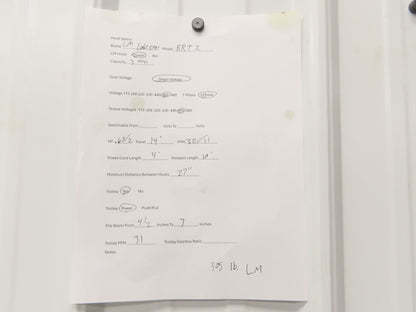 Hoist Specs
Brand CM Lodestar Model RRT 2
Off Hoist Electric Air
Capacity 3 ton
Dual Voltage Single Voltage
Voltage 115 208 220 230 460 480 1 Phase 3 Phase
Tested Voltages 115 208 220 230 460 480
Switchable From Volts To Volts
HP Travel 14' FPM 32/11
Power Cord Length 4' Pendant Length 10'
Minimum Distance Between Hooks 27"
Trolley Yes No
Trolley Power Push/Pull
Fits Beam From 4 1/2 Inches To 7 Inches
Trolley FPM 31 Trolley Gearbox Ratio
Notes
305 lb. LM